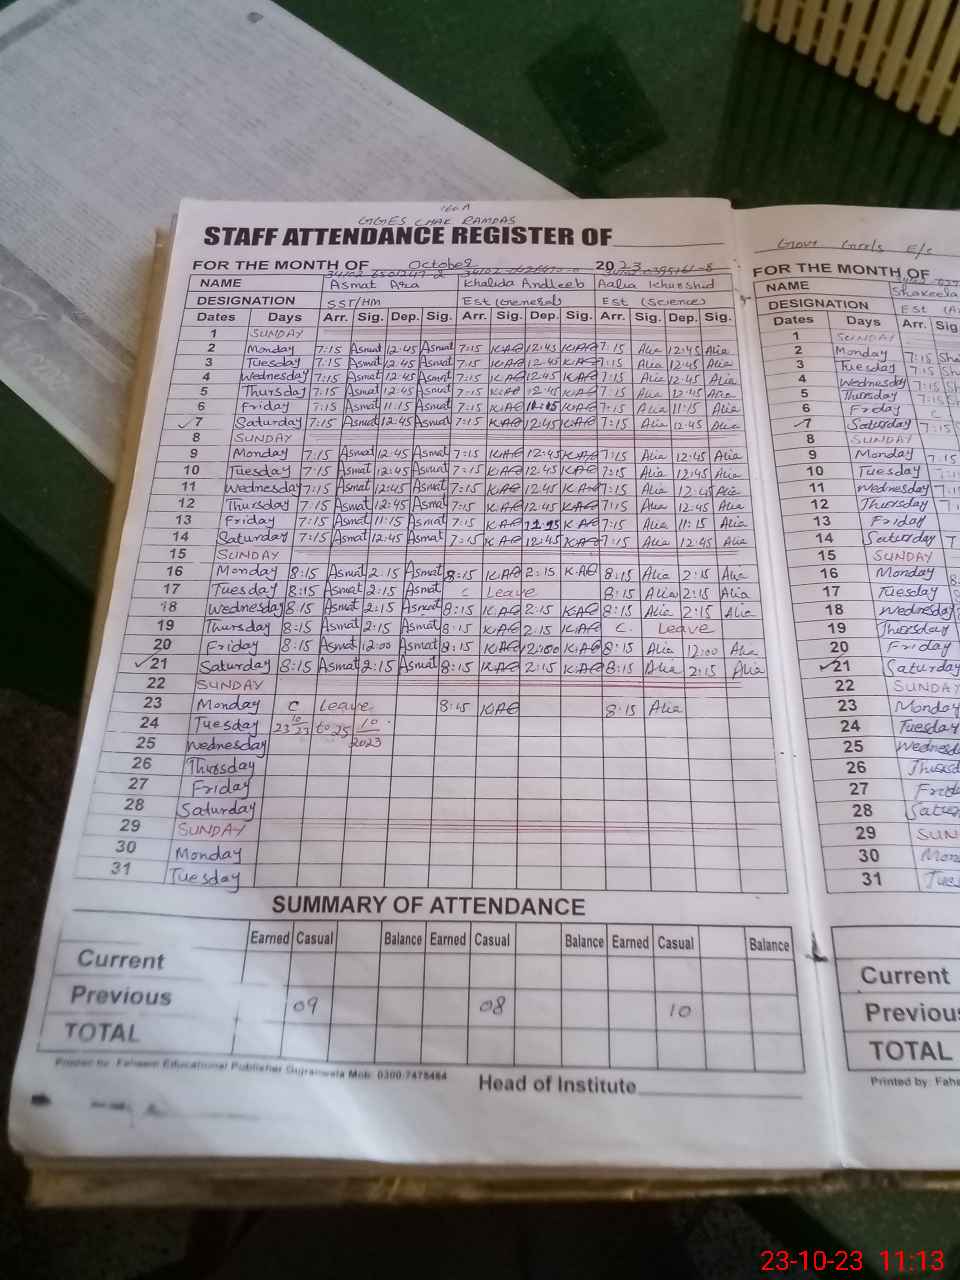 GGES CHAK RAMDAS
STAFF ATTENDANCE REGISTER OF
FOR THE MONTH OF October 2023
NAME Asmat Ara Khalida Andleeb Aalia Khurshid
DESIGNATION SST/Hm Est (General) Est (Science)
Dates Days Arr. Sig. Dep. Sig. Arr. Sig. Dep. Sig. Arr. Sig. Dep. Sig.
1 SUNDAY
2 Monday 7:15 Asmat 12:45 Asmat 7:15 KAE 12:45 KAE 7:15 Alia 12:45 Alia
3 Tuesday 7:15 Asmat 12:45 Asmat 7:15 KAE 12:45 KAE 7:15 Alia 12:45 Alia
4 Wednesday 7:15 Asmat 12:45 Asmat 7:15 KAE 12:45 KAE 7:15 Alia 12:45 Alia
5 Thursday 7:15 Asmat 12:45 Asmat 7:15 KAE 12:45 KAE 7:15 Alia 12:45 Alia
6 Friday 7:15 Asmat 11:15 Asmat 7:15 KAE KAE 7:15 Alia 11:15 Alia
7 Saturday 7:15 Asmat 12:45 Asmat 7:15 KAE 12:45 KAE 7:15 Alia 12:45 Alia
8 SUNDAY
9 Monday 7:15 Asmat 12:45 Asmat 7:15 KAE 12:45 KAE 7:15 Alia 12:45 Alia
10 Tuesday 7:15 Asmat 12:45 Asmat 7:15 KAE 12:45 KAE 7:15 Alia 12:45 Alia
11 Wednesday 7:15 Asmat 12:45 Asmat 7:15 KAE 12:45 KAE 7:15 Alia 12:45 Alia
12 Thursday 7:15 Asmat 12:45 Asmat 7:15 KAE 12:45 KAE 7:15 Alia 12:45 Alia
13 Friday 7:15 Asmat 11:15 Asmat 7:15 KAE KAE 7:15 Alia 11:15 Alia
14 Saturday 7:15 Asmat 12:45 Asmat 7:15 KAE 12:45 KAE 7:15 Alia 12:45 Alia
15 SUNDAY
16 Monday 8:15 Asmat 2:15 Asmat 8:15 KAE 2:15 KAE 8:15 Alia 2:15 Alia
17 Tuesday 8:15 Asmat 2:15 Asmat C Leave 8:15 Alia 2:15 Alia
18 Wednesday 8:15 Asmat 2:15 Asmat 8:15 KAE 2:15 KAE 8:15 Alia 2:15 Alia
19 Thursday 8:15 Asmat 2:15 Asmat 8:15 KAE 2:15 KAE C. Leave
20 Friday 8:15 Asmat 12:00 Asmat 8:15 KAE 12:00 KAE 8:15 Alia 12:00 Alia
21 Saturday 8:15 Asmat 2:15 Asmat 8:15 KAE 2:15 KAE 8:15 Alia 2:15 Alia
22 SUNDAY
23 Monday C Leave 8:15 KAE 8:15 Alia
24 Tuesday 23 10/23 to 25 10/2023
25 Wednesday
26 Thursday
27 Friday
28 Saturday
29 SUNDAY
30 Monday
31 Tuesday
SUMMARY OF ATTENDANCE
Earned Casual Balance Earned Casual Balance Earned Casual Balance
Current
Previous 09 08 10
TOTAL
Printed by: Faheem Educational Publisher Gujranwala Mob: 0300-7475484
Head of Institute
Govt Girls E/S
FOR THE MONTH OF
NAME Shakeela
DESIGNATION
Dates Days Arr. Sig
1 SUNDAY
2 Monday 7:15
3 Tuesday 7:15
4 Wednesday 7:15
5 Thursday 7:15
6 Friday C
7 Saturday 7:15
8 SUNDAY
9 Monday 7:15
10 Tuesday
11 Wednesday
12 Thursday
13 Friday
14 Saturday
15 SUNDAY
16 Monday
17 Tuesday
18 Wednesday
19 Thursday
20 Friday
21 Saturday
22 SUNDAY
23 Monday
24 Tuesday
25
26
27
28
29 SUN
30
31
Current
Previous
TOTAL
Printed by:
23-10-23 11:13